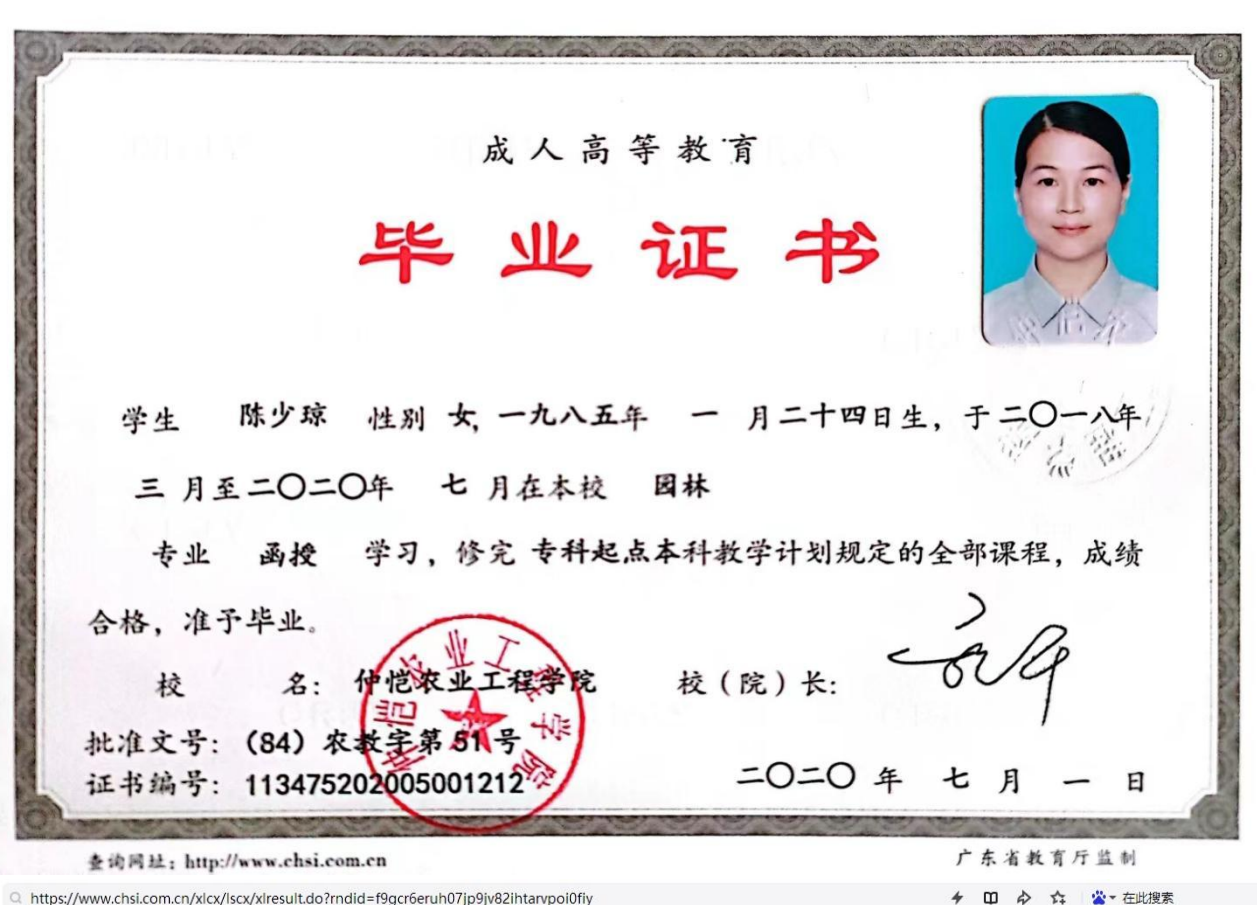 成人高等教育
毕业证书
学生 陈少琼 性别 女, 一九八五年 一 月二十四日生, 于二〇一八年
三 月至二〇二〇年 七 月在本校 园林
专业 函授 学习, 修完 专科起点本科教学计划规定的全部课程, 成绩
合格, 准予毕业。
校 名: 仲恺农业工程学院 校（院）长:
仲恺农业工程学院
批准文号: （84）农教字第 51 号
证书编号: 113475202005001212
二〇二〇 年 七 月 一 日
查询网址: http://www.chsi.com.cn
广东省教育厅监制
https://www.chsi.com.cn/xlcx/lscx/xlresult.do?rndid=f9gcr6eruh07jp9jv82ihtarvpoi0fiy
在此搜索